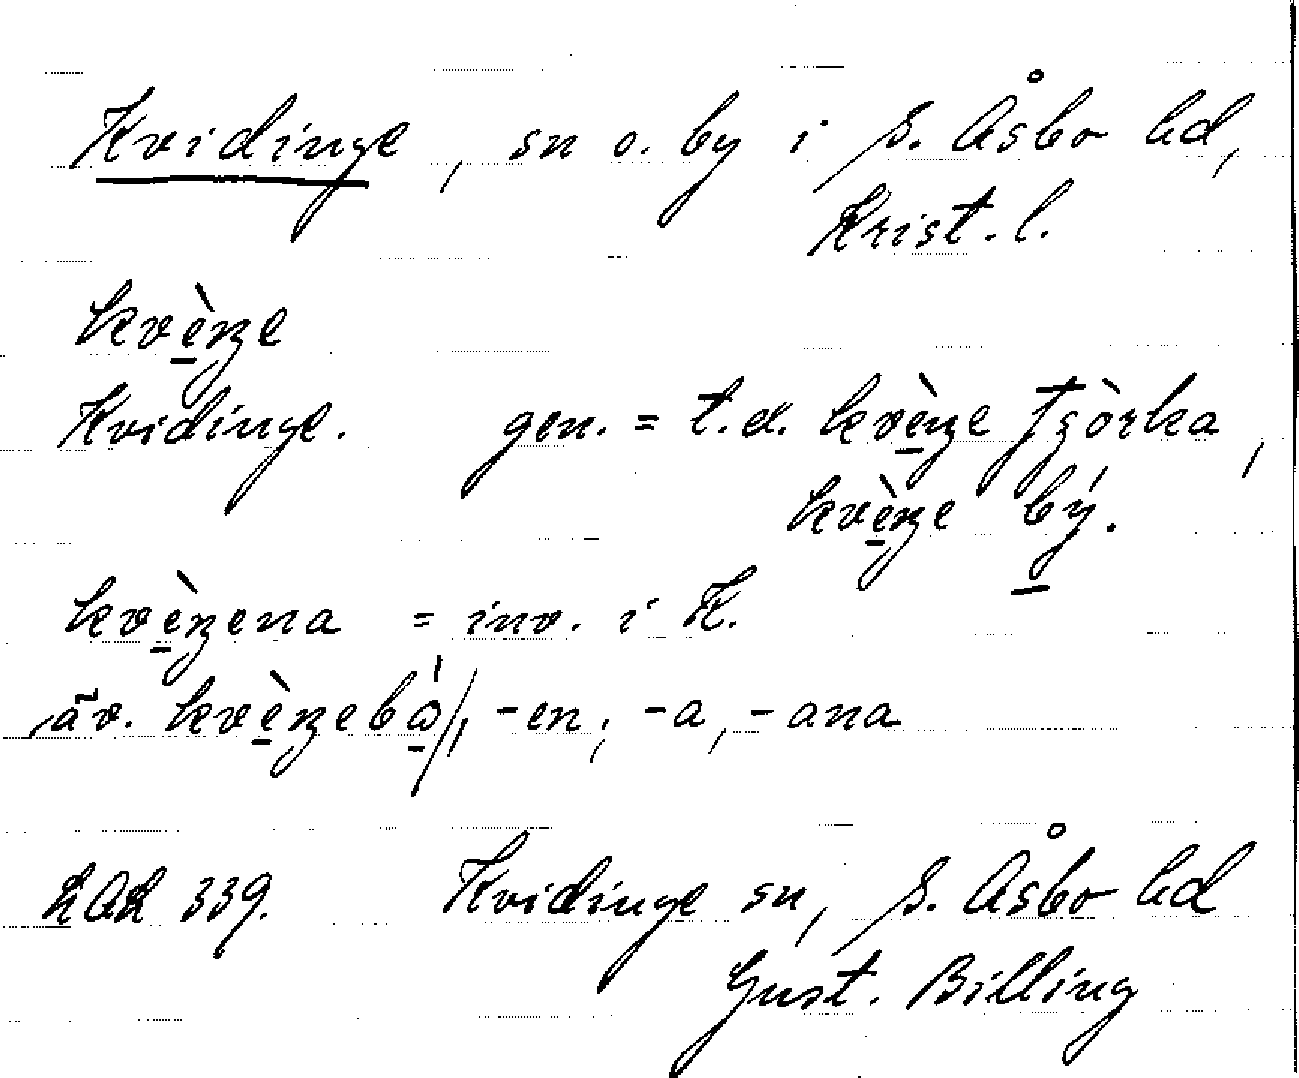 Kvidinge, sn o. by i S. Åsbo hd,
Krist. l.
kvèŋe
Kvidinge. gen. = t.ex. kvèŋe
kvèŋe bý.
kvèŋena = inv. i K.
äv. kvèŋebò, -en, -a, -ana
339. Kvidinge sn, S. Åsbo hd
Gust. Billing